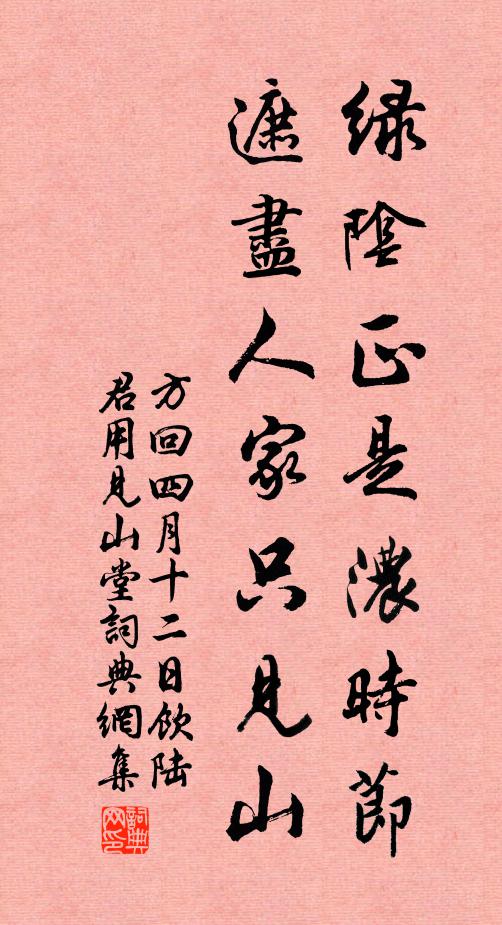 綠陰正是濃時節
遮盡人家只見山
方回四月十二日飲陸
君用見山堂詞典網集
詞典
网印